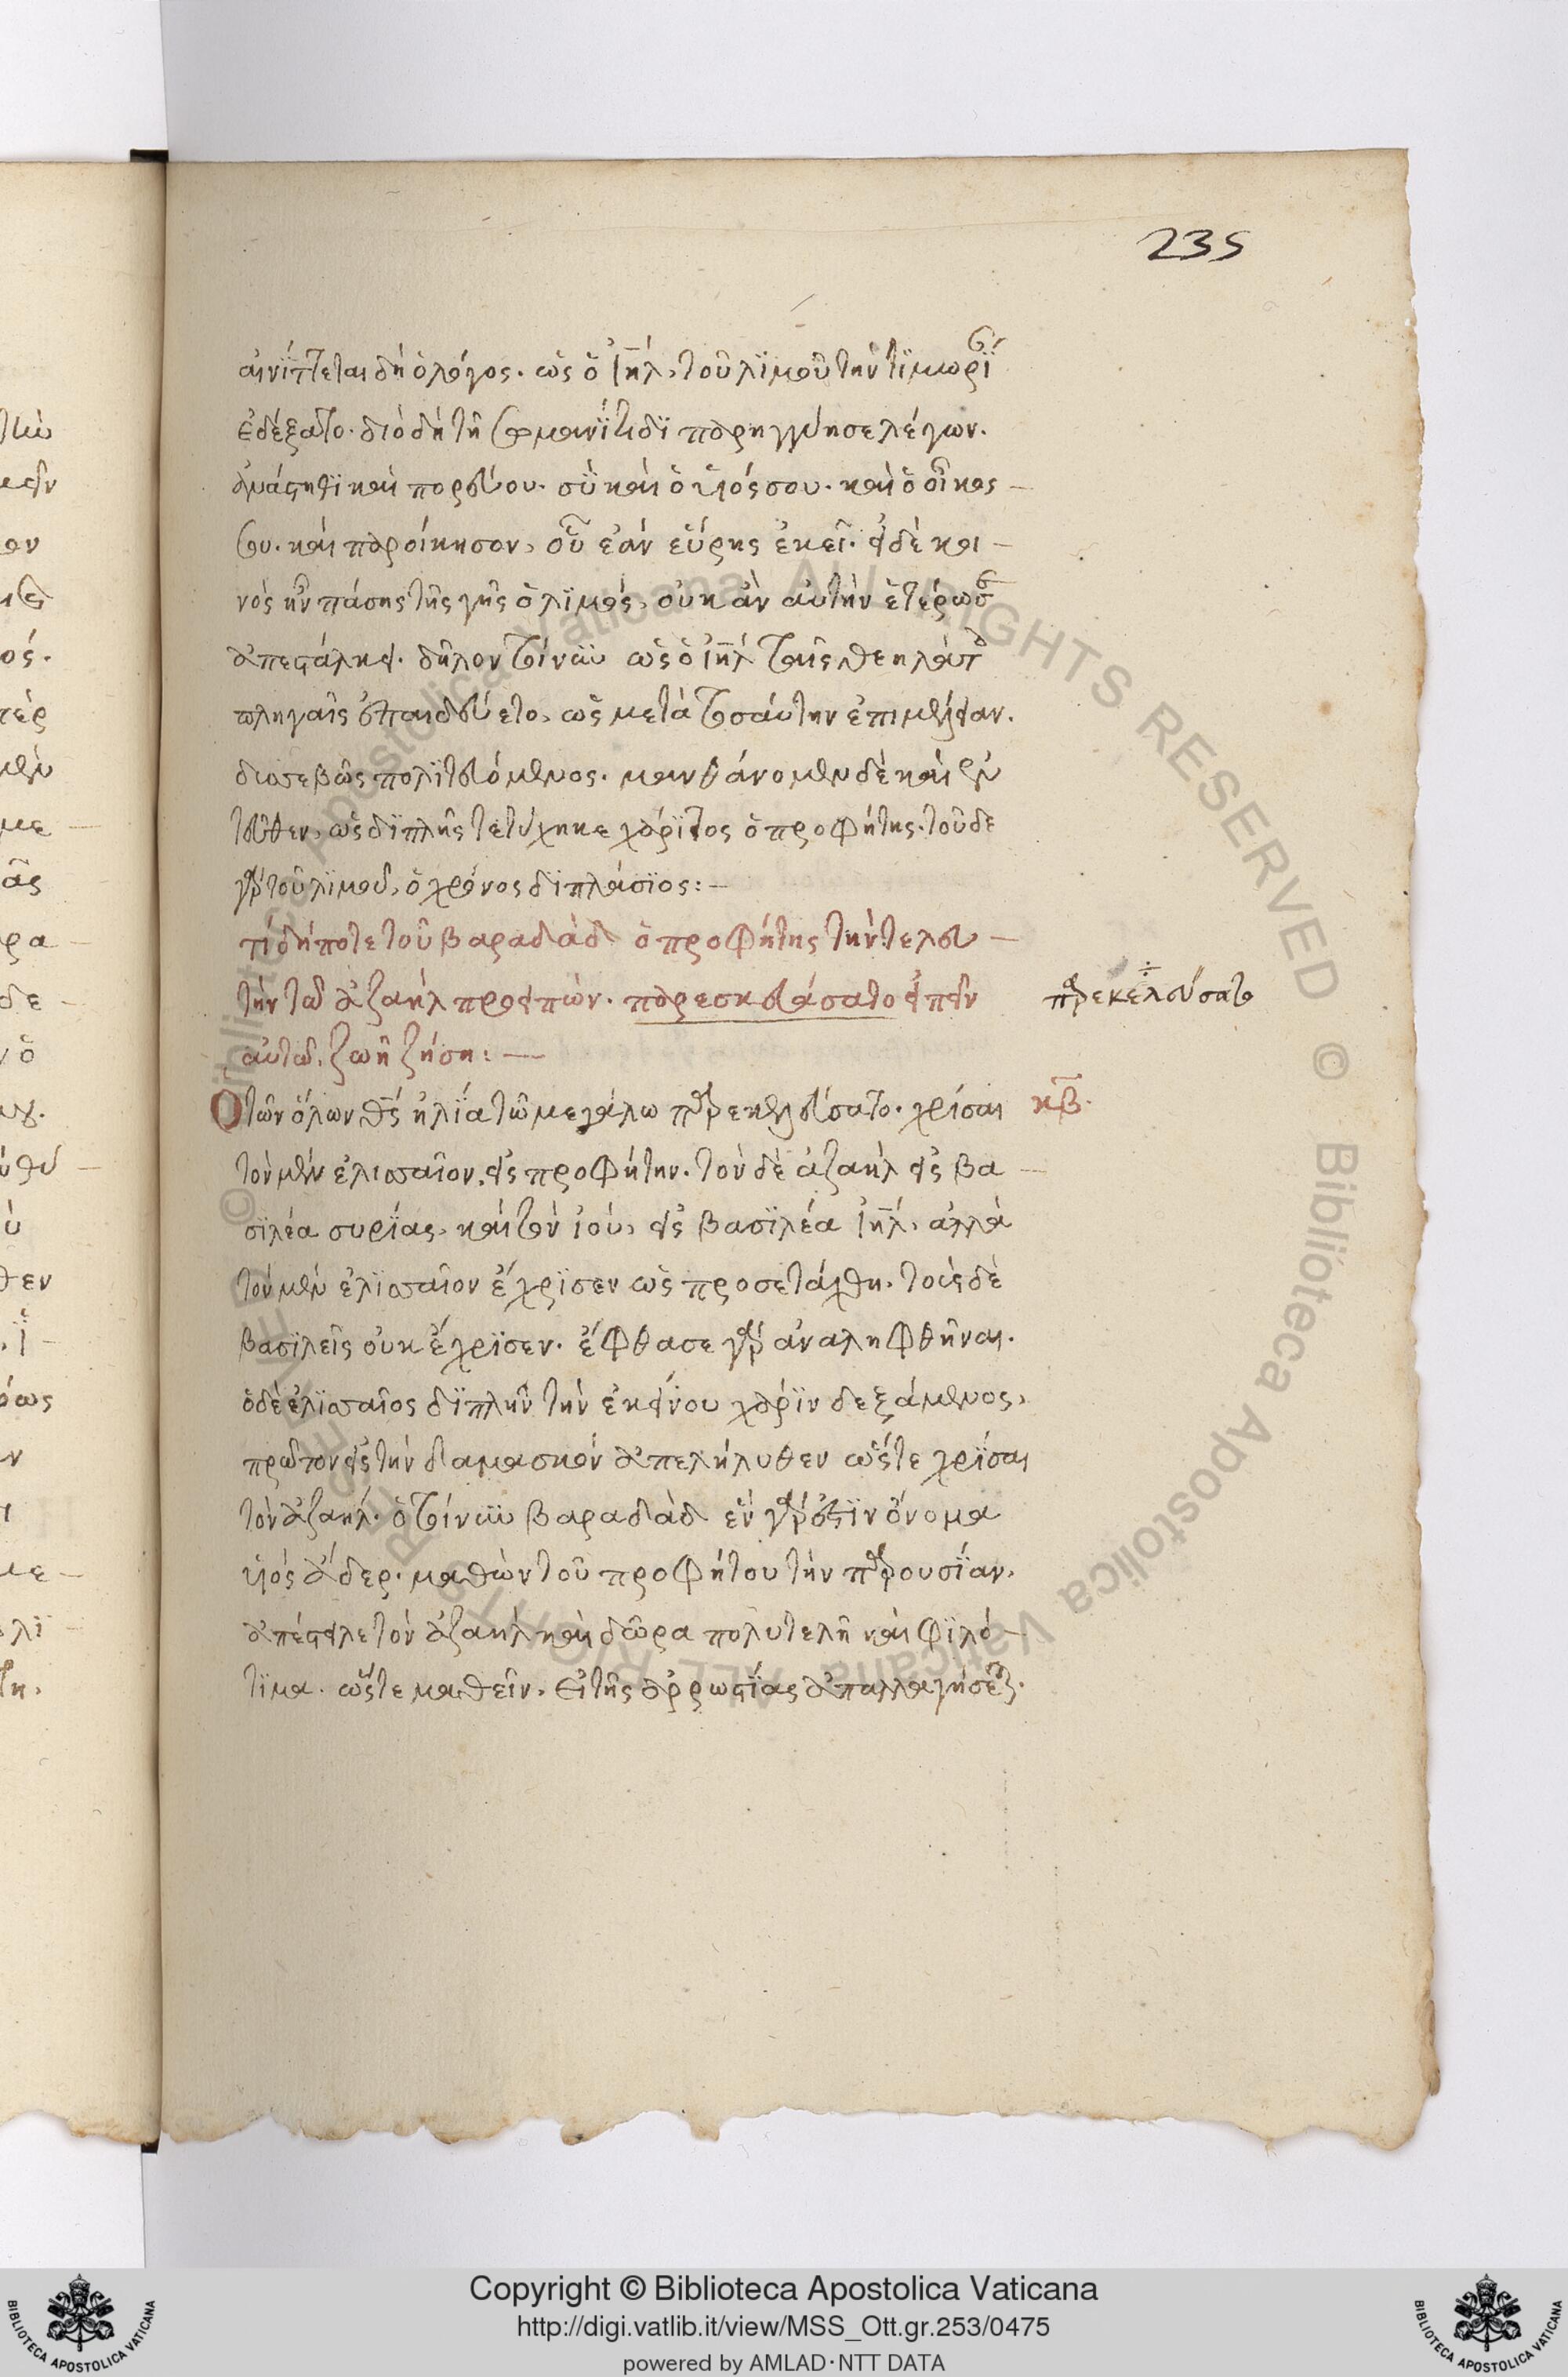 235
αινίττεται δὴ ὁ λόγος. ὡς ὁ ἰη̅λ, τοῦ λϊμοῦ τὴν τϊμωρΐ
ἐδέξατο. διὸ δὴ τῆ σωμανίτιδϊ παρηγγύησε λέγων.
ἀνάστηθϊ καὶ πορεύου. σὺ καὶ ὁ ϋἱός σου. καὶ ὁ οἶκος –
σου. καὶ παροίκησον, οὗ ἐὰν εὕρης ἐκεῖ. εἰ δὲ κοι –
νὸς ἦν πάσης τῆς γῆς ὁ λϊμός, οὐκ ἂν αὐτὴν ἑτέρωσ
ἀπεστάλκει. δῆλον τοίνυν ὡς ὁ ἰη̅λ ταῖς θεηλάτ
πληγαῖς ἐπαιδεύετο, ὡς μετὰ τοσαύτην ἐπιμέλειαν.
δυσσεβῶς πολϊτευόμενος. μανθάνομεν δὲ καὶ ἐν
τεῦθεν, ὡς διπλῆς τετύχηκε χάρϊτος ὁ προφήτης. τοῦδε
γὰρ τοῦ λϊμοῦ, ὁ χρόνος διπλάσϊος: –
τί δήποτε τοῦ βαραδὰδ ὁ προφήτης τὴν τελευ –
τὴν τῶ ἀζαὴλ προειπών. παρεσκευάσατο εἰπεῖν
αὐτῶ. ζωῆ ζήση: –
παρεκελεύσατο
Ὁ τῶν ὅλων θς ἠλία τῶ μεγάλω παρεκελεύσατο. χρίσαι
κβ.
τὸν μὲν ἐλισσαῖον, εἰς προφήτην. τὸν δὲ ἀζαὴλ εἰς βα –
σϊλέα συρίας, καὶ τὸν ἰοὺ, εἰς βασϊλέα ἰη̅λ. ἀλλὰ
τὸν μὲν ἐλϊσσαῖον ἔχρϊσεν ὡς προσετάχθη. τοὺς δὲ
βασϊλεῖς οὐκ ἔχρϊσεν. ἔφθασε γὰρ ἀναληφθῆναι.
ὁ δὲ ἐλϊσσαῖος διπλῆν τὴν ἐκείνου χάρϊν δεξάμενος,
πρῶτον εἰς τὴν δαμασκὸν ἀπελήλυθεν ὥστε χρῖσαι
τὸν ἀζαήλ. ὁ τοίνυν βαραδὰδ ἓν γάρ ἐστϊν ὄνομα
υἱὸς ἄδερ. μαθὼν τοῦ προφήτου τὴν παρουσΐαν,
ἀπέστειλε τὸν ἀζαὴλ καὶ δῶρα πολυτελῆ καὶ φϊλό –
τϊμα. ὥστε μαθεῖν. εἰ τῆς ἀρρωστίας ἀπαλλαγήσεται.
Copyright © Biblioteca Apostolica Vaticana
http://digi.vatlib.it/view/MSS_Ott.gr.253/0475
powered by AMLAD·NTT DATA